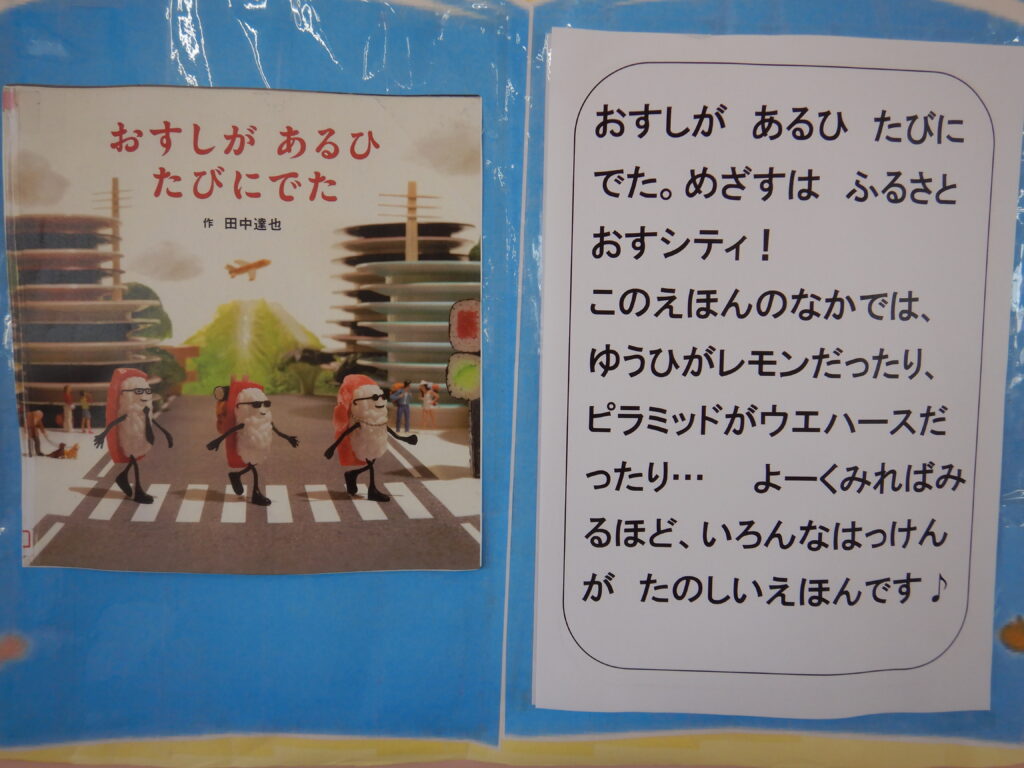 おすしが あるひ
たびにでた
作 田中達也
おすしが あるひ たびに
でた。めざすは ふるさと
おすシティ！
このえほんのなかでは、
ゆうひがレモンだったり、
ピラミッドがウエハースだ
ったり… よーくみればみ
るほど、いろんなはっけん
が たのしいえほんです♪